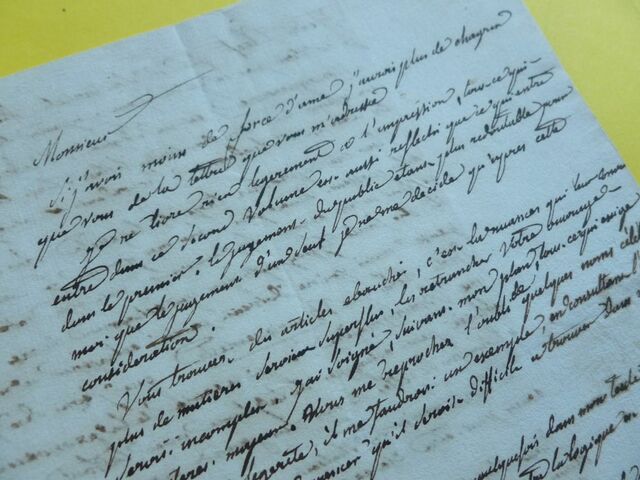 Monsieur
Si j'avois moins de force d'ame j'aurois plus de chagrin
que vous de la lettre que vous m'adressé
je ne livre rien legerement à l'impression, tout ce qui
entre dans ce second volume est aussi reflechi que ce qui entre
dans le premier. le jugement du public etant plus redoutable pour
moi que le jugement d'un seul je ne me decide qu'apres cette
consideration.
Vous trouvez des articles ebauchés, c'est les nuances qui leur
plus de matieres seroient superflus, les retrancher votre ouvrage
seroit incomplet. j'ai soigné, suivant mon plan, tout ce qui exige
majeur. Vous me reprochez l'oubli de quelques noms
il me faudroit un exemple, en consultant
qu'il seroit difficile de trouver dans
quelquefois dans mon
la logique